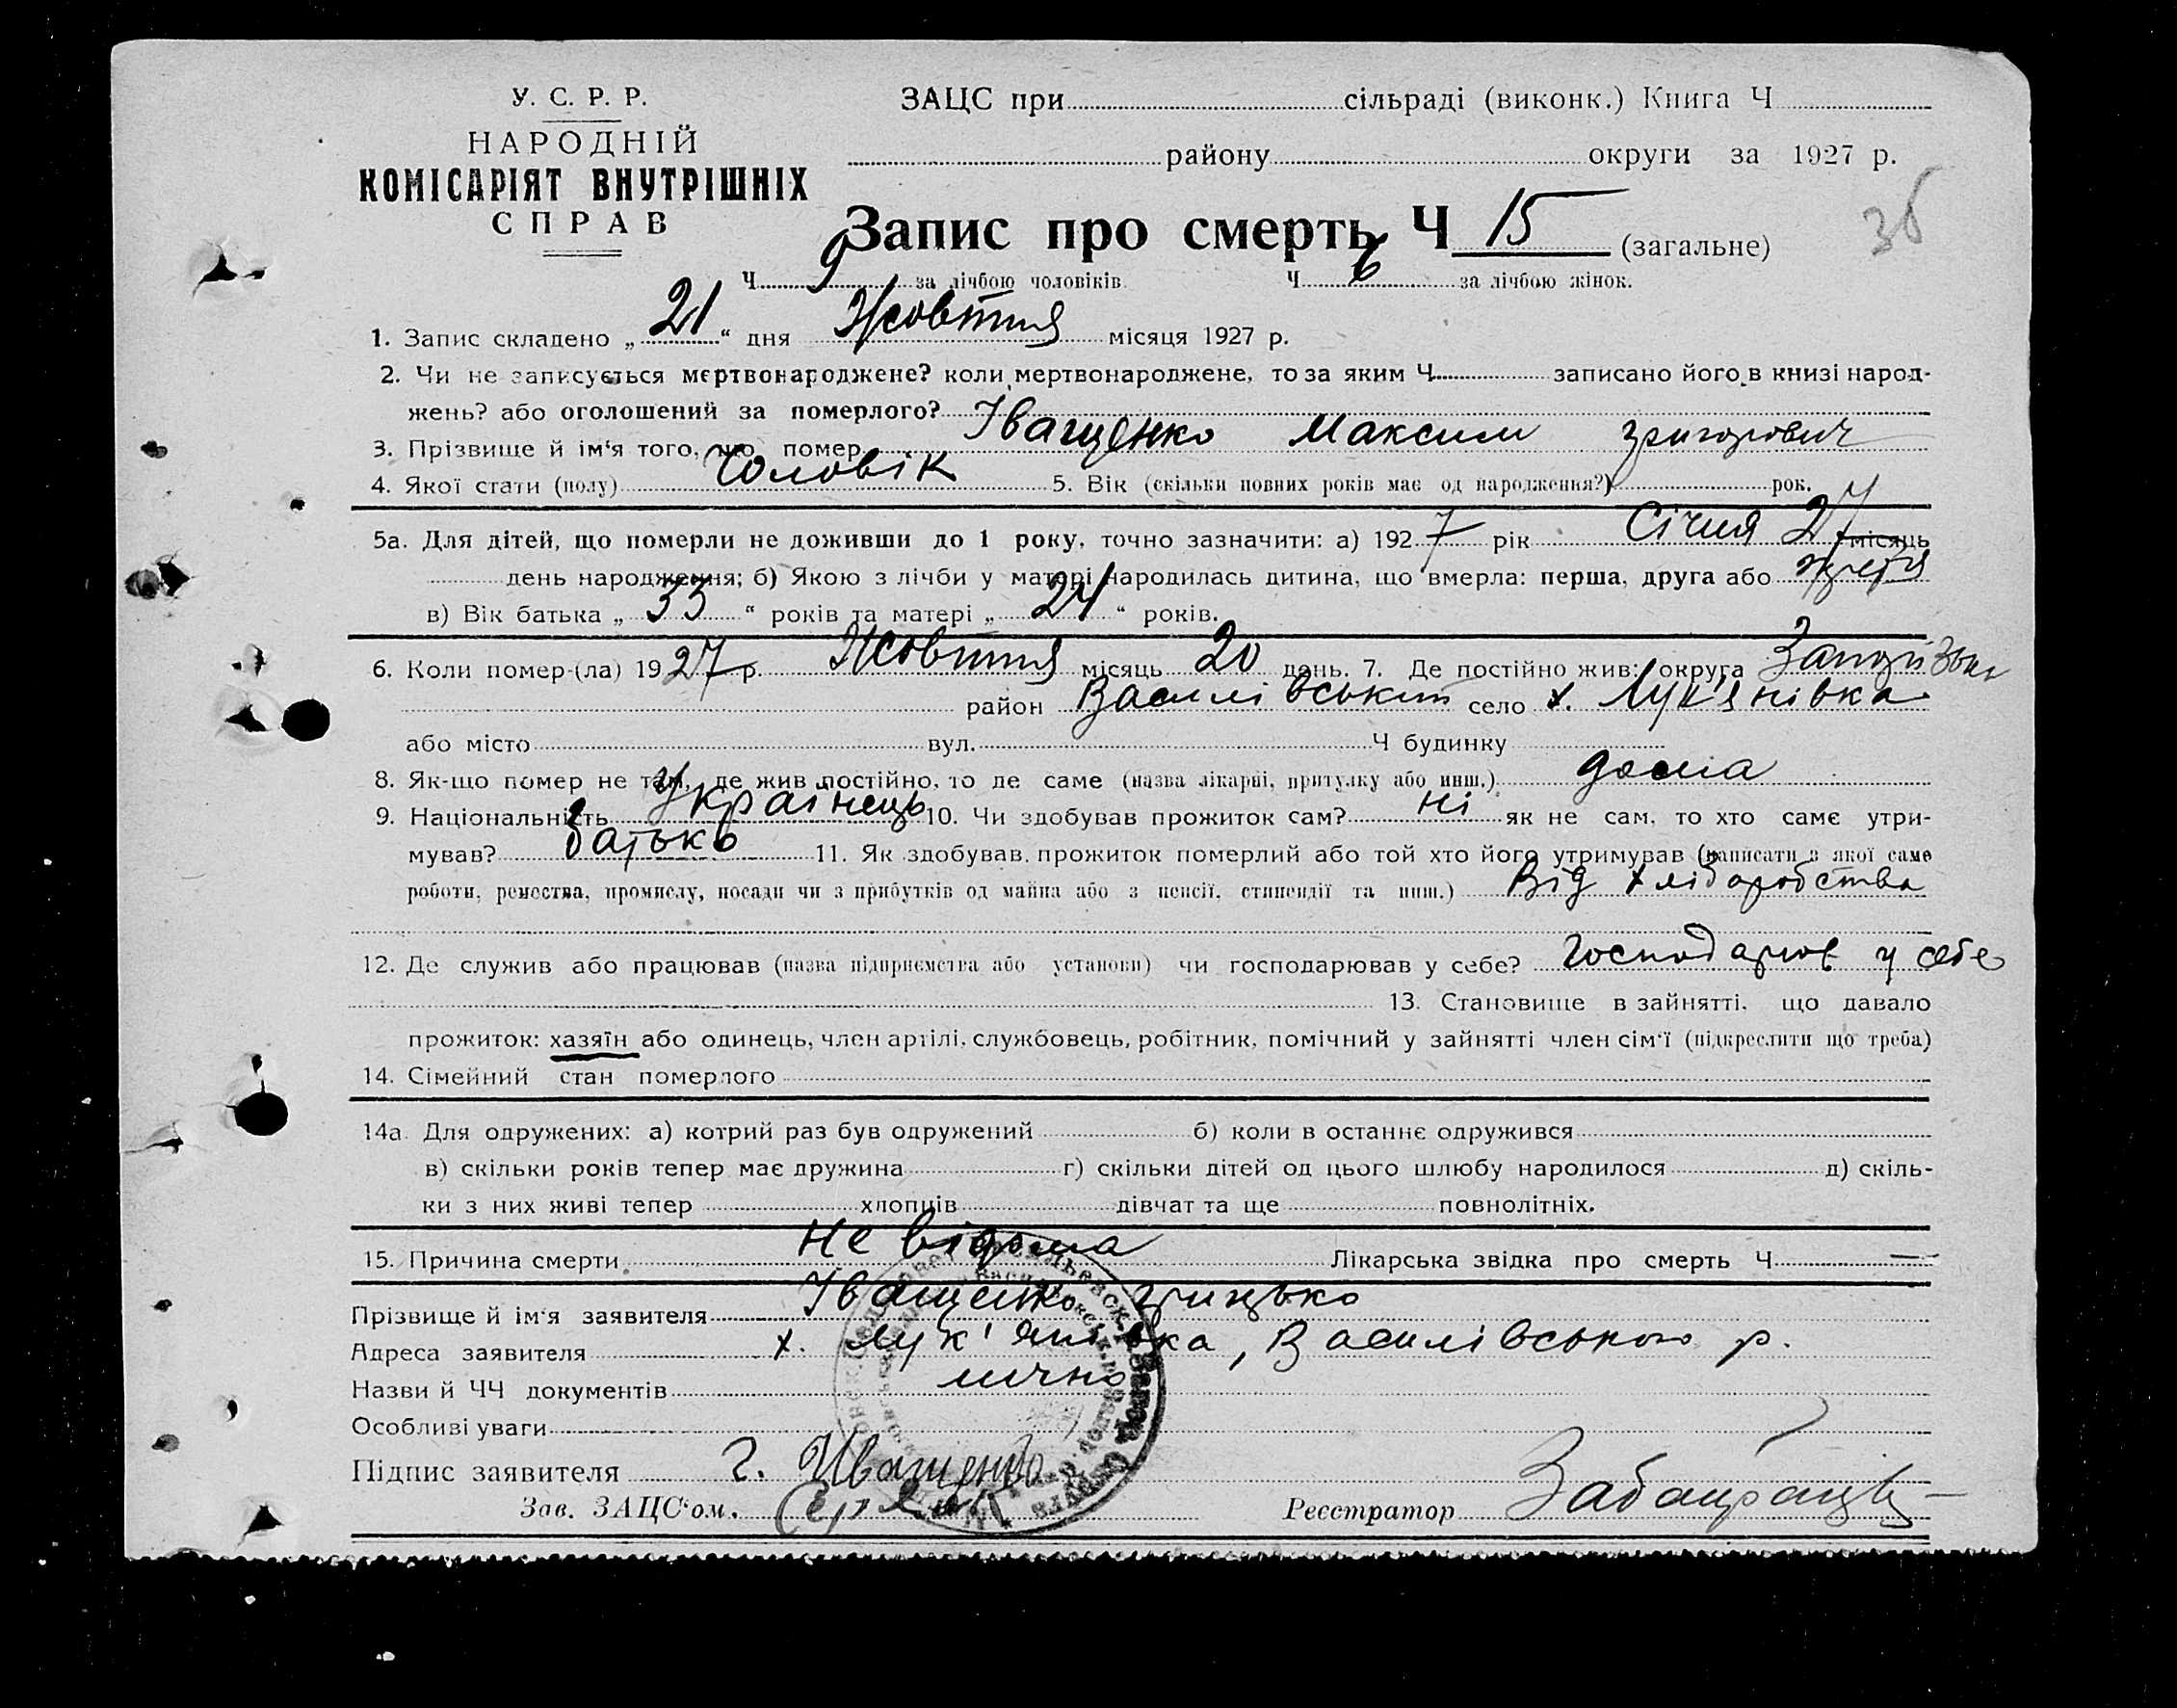 У. С. Р. Р.
НАРОДНІЙ
КОМІСАРІЯТ ВНУТРІШНІХ
СПРАВ
ЗАЦС при сільраді (виконк.) Книга Ч
району округи за 1927 р.
36
Запис про смерть Ч 15 (загальне)
Ч 9 за лічбою чоловіків. Ч 6 за лічбою жінок.
1. Запис складено „ 21 “ дня Жовтня місяця 1927 р.
2. Чи не записується мертвонароджене? коли мертвонароджене, то за яким Ч записано його в книзі народ-
жень? або оголошений за померлого?
3. Прізвище й ім'я того, що помер Іващенко Максим Григорович
4. Якої стати (полу) Чоловік 5. Вік (скільки повних років має од народження?) рок.
5а. Для дітей, що померли не доживши до 1 року, точно зазначити: а) 1927 рік Січня 27 місяць
день народження; б) Якою з лічби у матері народилась дитина, що вмерла: перша, друга або третя
в) Вік батька „ 33 “ років та матері „ 24 “ років.
6. Коли помер-(ла) 1927 р. Жовтня місяць 20 день. 7. Де постійно жив: округа
район Василівський село х. Лук'янівка
або місто вул. Ч будинку
8. Як-що помер не там, де жив постійно, то де саме (назва лікарні, притулку або инш.) дома
9. Національність Українець 10. Чи здобував прожиток сам? ні як не сам, то хто саме утри-
мував? батько 11. Як здобував прожиток померлий або той хто його утримував (написати з якої саме
роботи, ремества, промислу, посади чи з прибутків од майна або з пенсії, стипендії та инш.) Від хліборобства
12. Де служив або працював (назва підприємства або установи) чи господарював у себе? Господарював у себе
13. Становище в зайнятті, що давало
прожиток: хазяїн або одинець, член артілі, службовець, робітник, помічний у зайнятті член сім'ї (підкреслити що треба)
14. Сімейний стан померлого
14а. Для одружених: а) котрий раз був одружений б) коли в останнє одружився
в) скільки років тепер має дружина г) скільки дітей од цього шлюбу народилося д) скіль-
ки з них живі тепер хлопців дівчат та ще повнолітніх.
15. Причина смерти Не відома Лікарська звідка про смерть Ч —
Прізвище й ім'я заявителя Іващенко Грицько
Адреса заявителя х. Лук'янівка, Василівського р.
Назви й ЧЧ документів лично
Особливі уваги
Підпис заявителя Г. Иващенко
Зав. ЗАЦС'ом.
Реєстратор